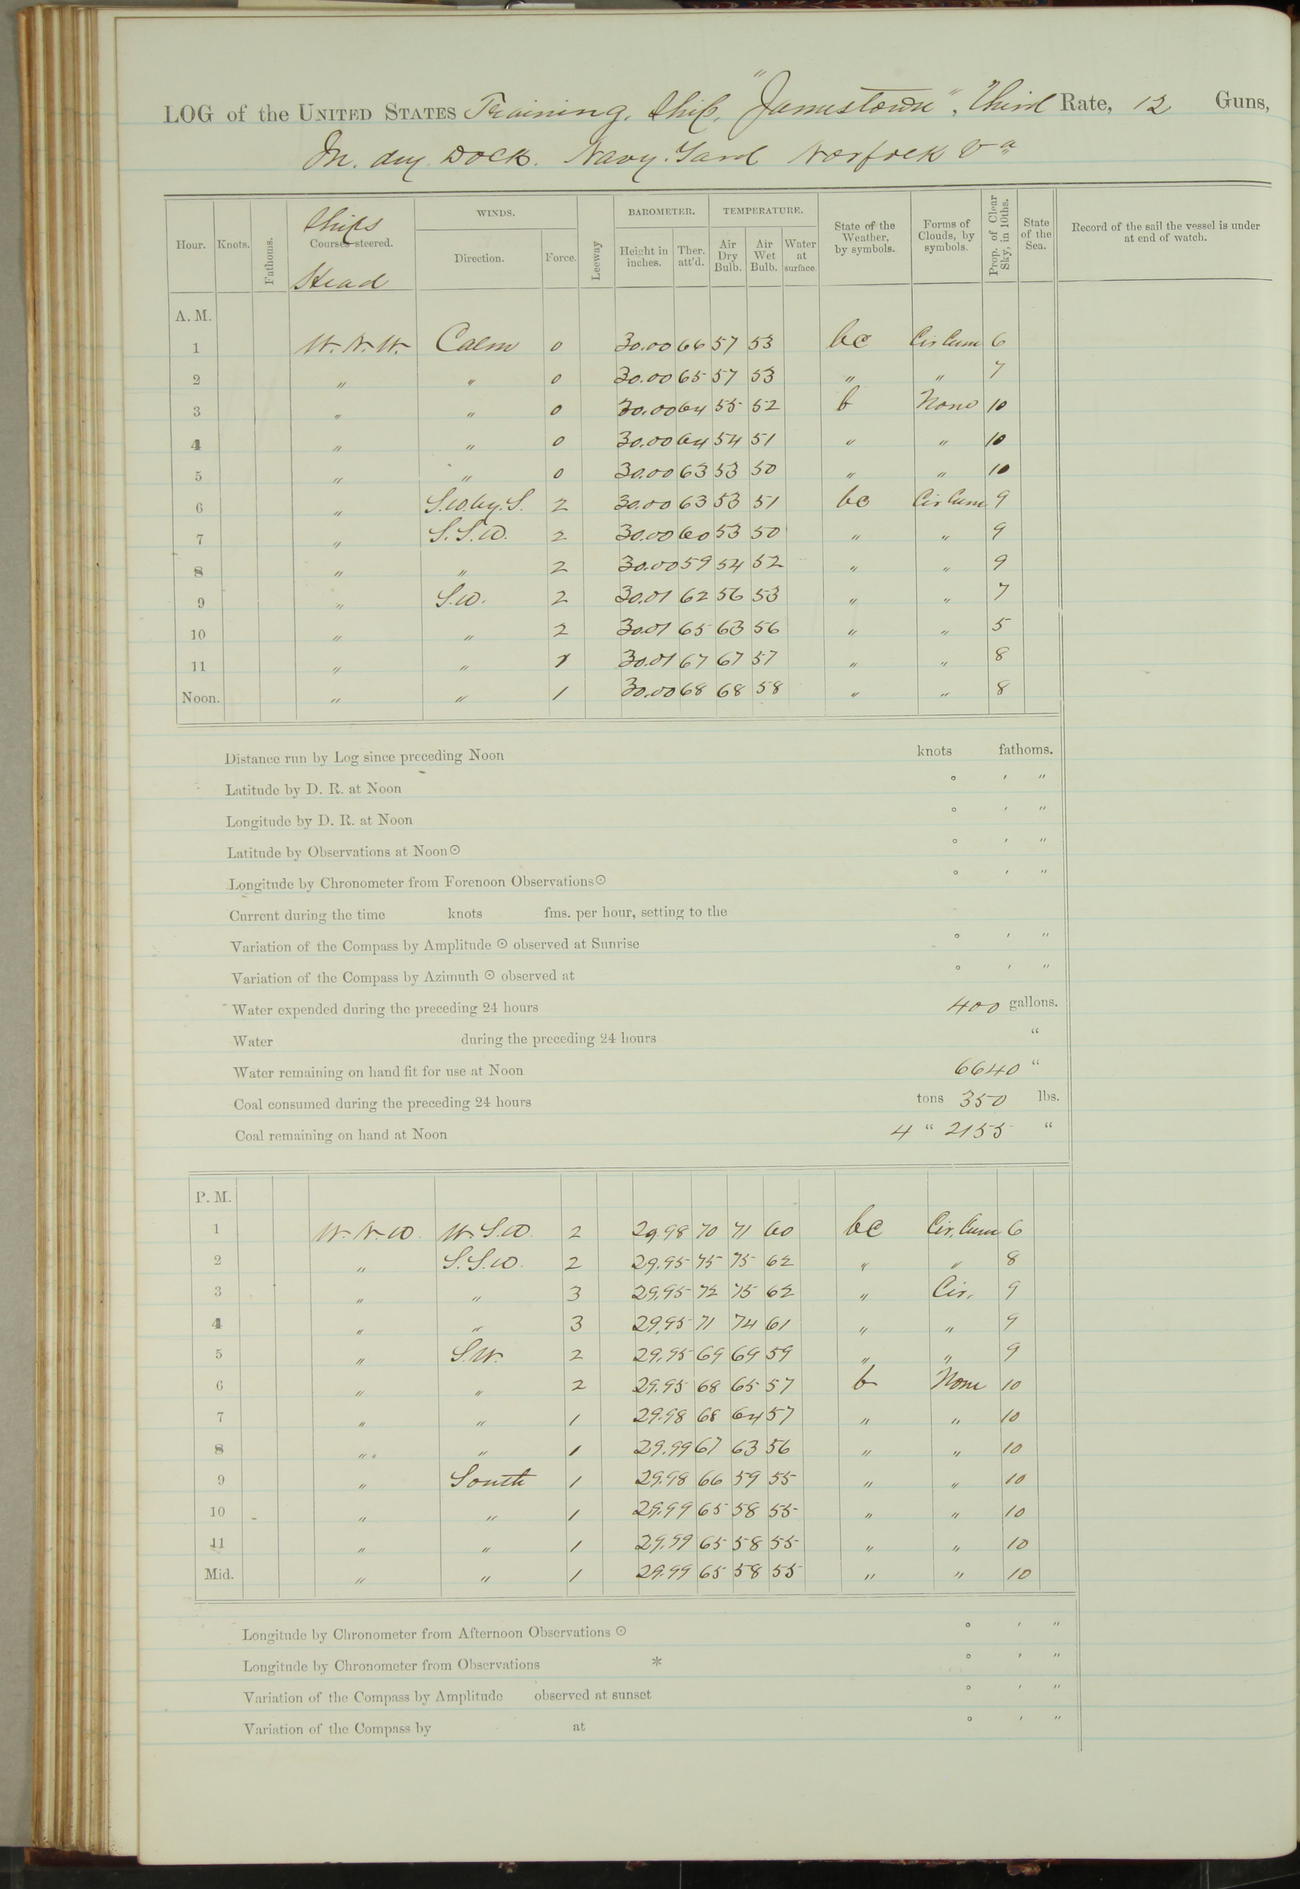 LOG of the UNITED STATES Training Ship, "Jamestown", Third Rate, 12 Guns,
In dry Dock. Navy Yard Norfolk Va
Hour. Knots. Fathoms. Ships Courses steered. Head WINDS. Direction. Force. Leeway BAROMETER. Height in inches. Ther. att'd. TEMPERATURE. Air Dry Bulb. Air Wet Bulb. Water at surface. State of the Weather, by symbols. Forms of Clouds, by symbols. Prop. of Clear Sky, in 10ths. State of the Sea. Record of the sail the vessel is under at end of watch.
A. M.
1 W.N.W. Calm 0 30.00 66 57 53 bc Cir Cum 6
2 " " 0 30.00 65 57 53 " " 7
3 " " 0 30.00 64 55 52 b None 10
4 " " 0 30.00 64 54 51 " " 10
5 " " 0 30.00 63 53 50 " " 10
6 " S.W. by S. 2 30.00 63 53 51 bc Cir Cum 9
7 " S.S.W. 2 30.00 60 53 50 " " 9
8 " " 2 30.00 59 54 52 " " 9
9 " S.W. 2 30.01 62 56 53 " " 7
10 " " 2 30.01 65 63 56 " " 5
11 " " 1 30.01 67 67 57 " " 8
Noon. " " 1 30.00 68 68 58 " " 8
Distance run by Log since preceding Noon knots fathoms.
Latitude by D. R. at Noon ° ' "
Longitude by D. R. at Noon ° ' "
Latitude by Observations at Noon ☉ ° ' "
Longitude by Chronometer from Forenoon Observations ☉ ° ' "
Current during the time knots fms. per hour, setting to the
Variation of the Compass by Amplitude ☉ observed at Sunrise ° ' "
Variation of the Compass by Azimuth ☉ observed at ° ' "
Water expended during the preceding 24 hours 400 gallons.
Water during the preceding 24 hours "
Water remaining on hand fit for use at Noon 6640 "
Coal consumed during the preceding 24 hours tons 350 lbs.
Coal remaining on hand at Noon 4 " 2155 "
P. M.
1 W.N.W. W.S.W. 2 29.98 70 71 60 bc Cir. Cum 6
2 " S.S.W. 2 29.95 75 75 62 " " 8
3 " " 3 29.95 72 75 62 " Cir. 9
4 " " 3 29.95 71 74 61 " " 9
5 " S.W. 2 29.95 69 69 59 " " 9
6 " " 2 29.95 68 65 57 b None 10
7 " " 1 29.98 68 64 57 " " 10
8 " " 1 29.99 67 63 56 " " 10
9 " South 1 29.98 66 59 55 " " 10
10 " " 1 29.99 65 58 55 " " 10
11 " " 1 29.99 65 58 55 " " 10
Mid. " " 1 29.99 65 58 55 " " 10
Longitude by Chronometer from Afternoon Observations ☉ ° ' "
Longitude by Chronometer from Observations * ° ' "
Variation of the Compass by Amplitude observed at sunset ° ' "
Variation of the Compass by at ° ' "